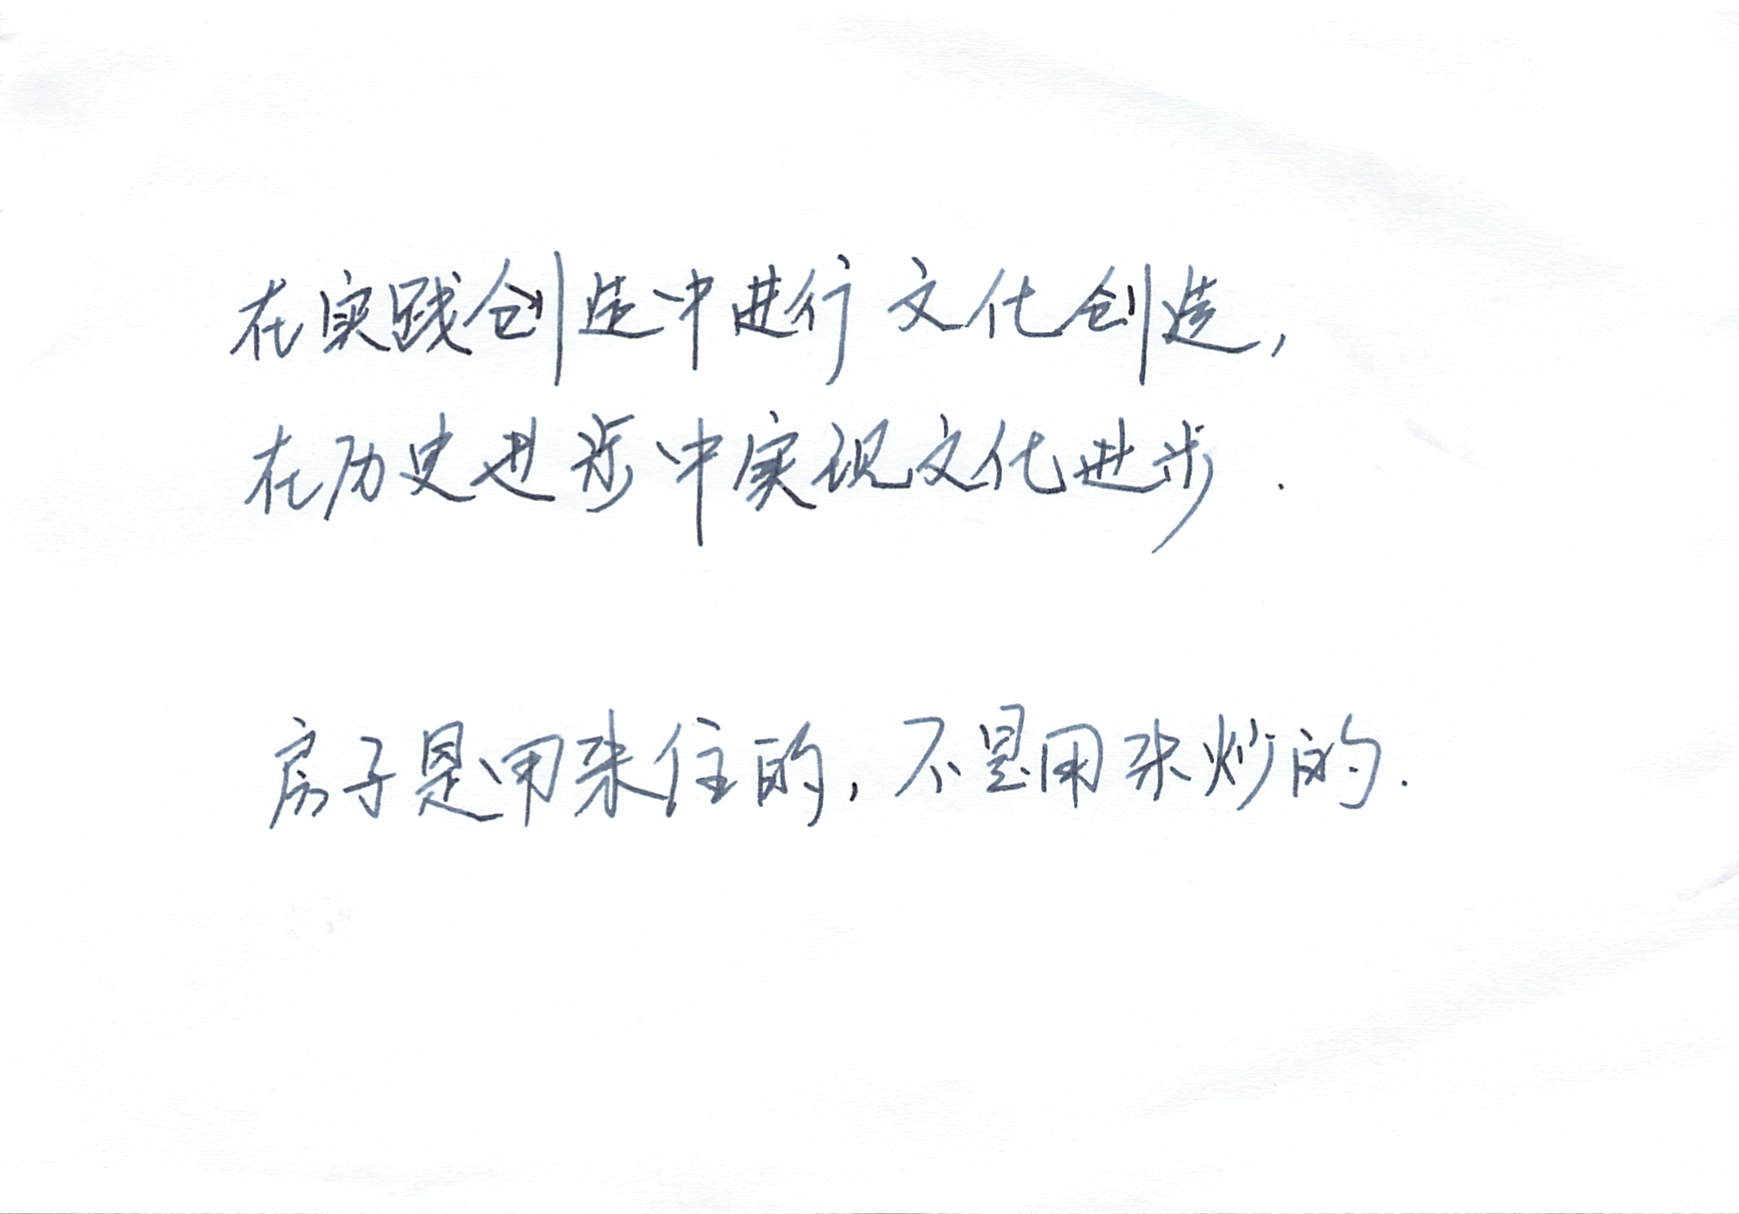 在实践创造中进行文化创造,
在历史进步中实现文化进步.
房子是用来住的,不是用来炒的.